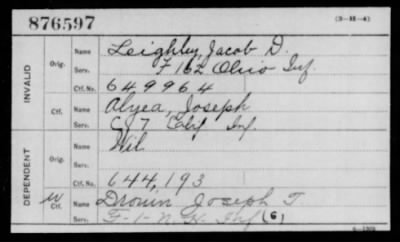 876597 (3-H-4)
INVALID
Orig. Name Leighley, Jacob D.
Serv. F 162 Ohio Inf.
Ctf. No. 649964
Ctf. Name Alyea, Joseph
Serv. C. 7 Calif Inf.
DEPENDENT
Orig. Name Wil
Serv.
Ctf. No. 644,193
W Ctf. Name Drouin Joseph T.
Serv. F-1-N.H. Inf (6)